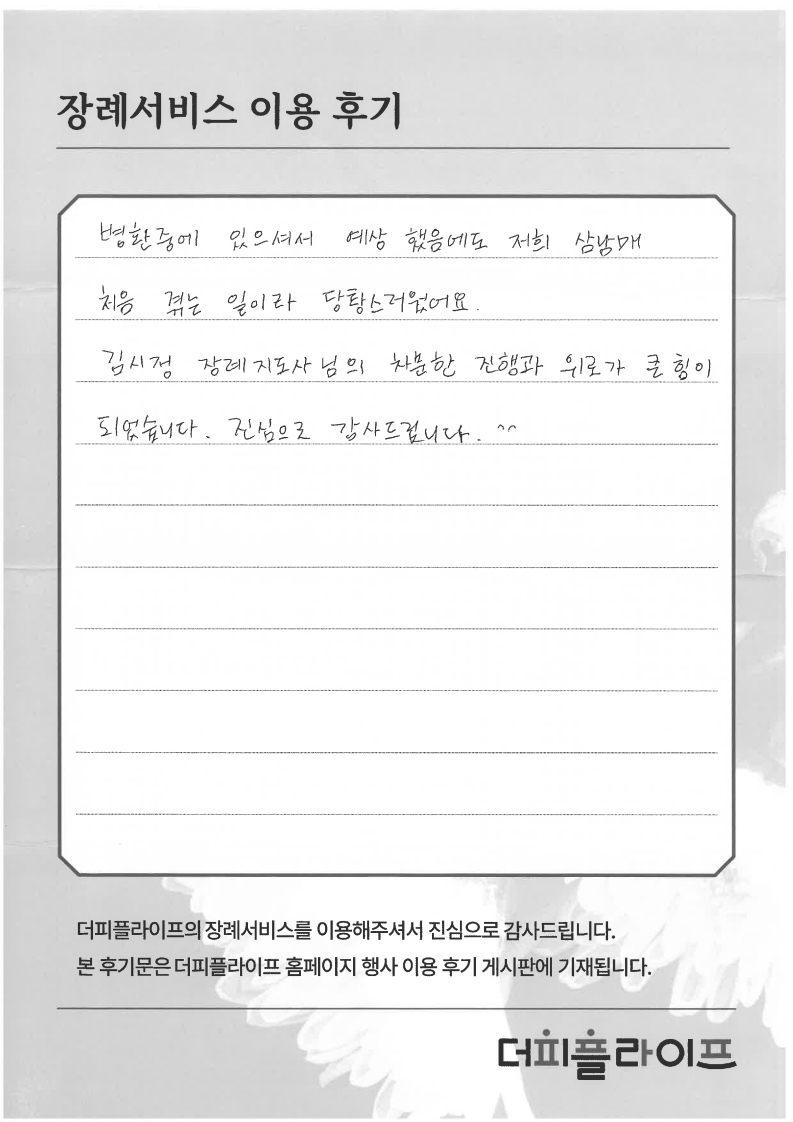 장례서비스 이용 후기
병환중에 있으셔서 예상 했음에도 저희 삼남매
처음 겪는 일이라 당황스러웠어요.
김시정 장례지도사님의 차분한 진행과 위로가 큰 힘이
되었습니다. 진심으로 감사드립니다. ^^
더피플라이프의 장례서비스를 이용해주셔서 진심으로 감사드립니다.
본 후기문은 더피플라이프 홈페이지 행사 이용 후기 게시판에 기재됩니다.
더피플라이프